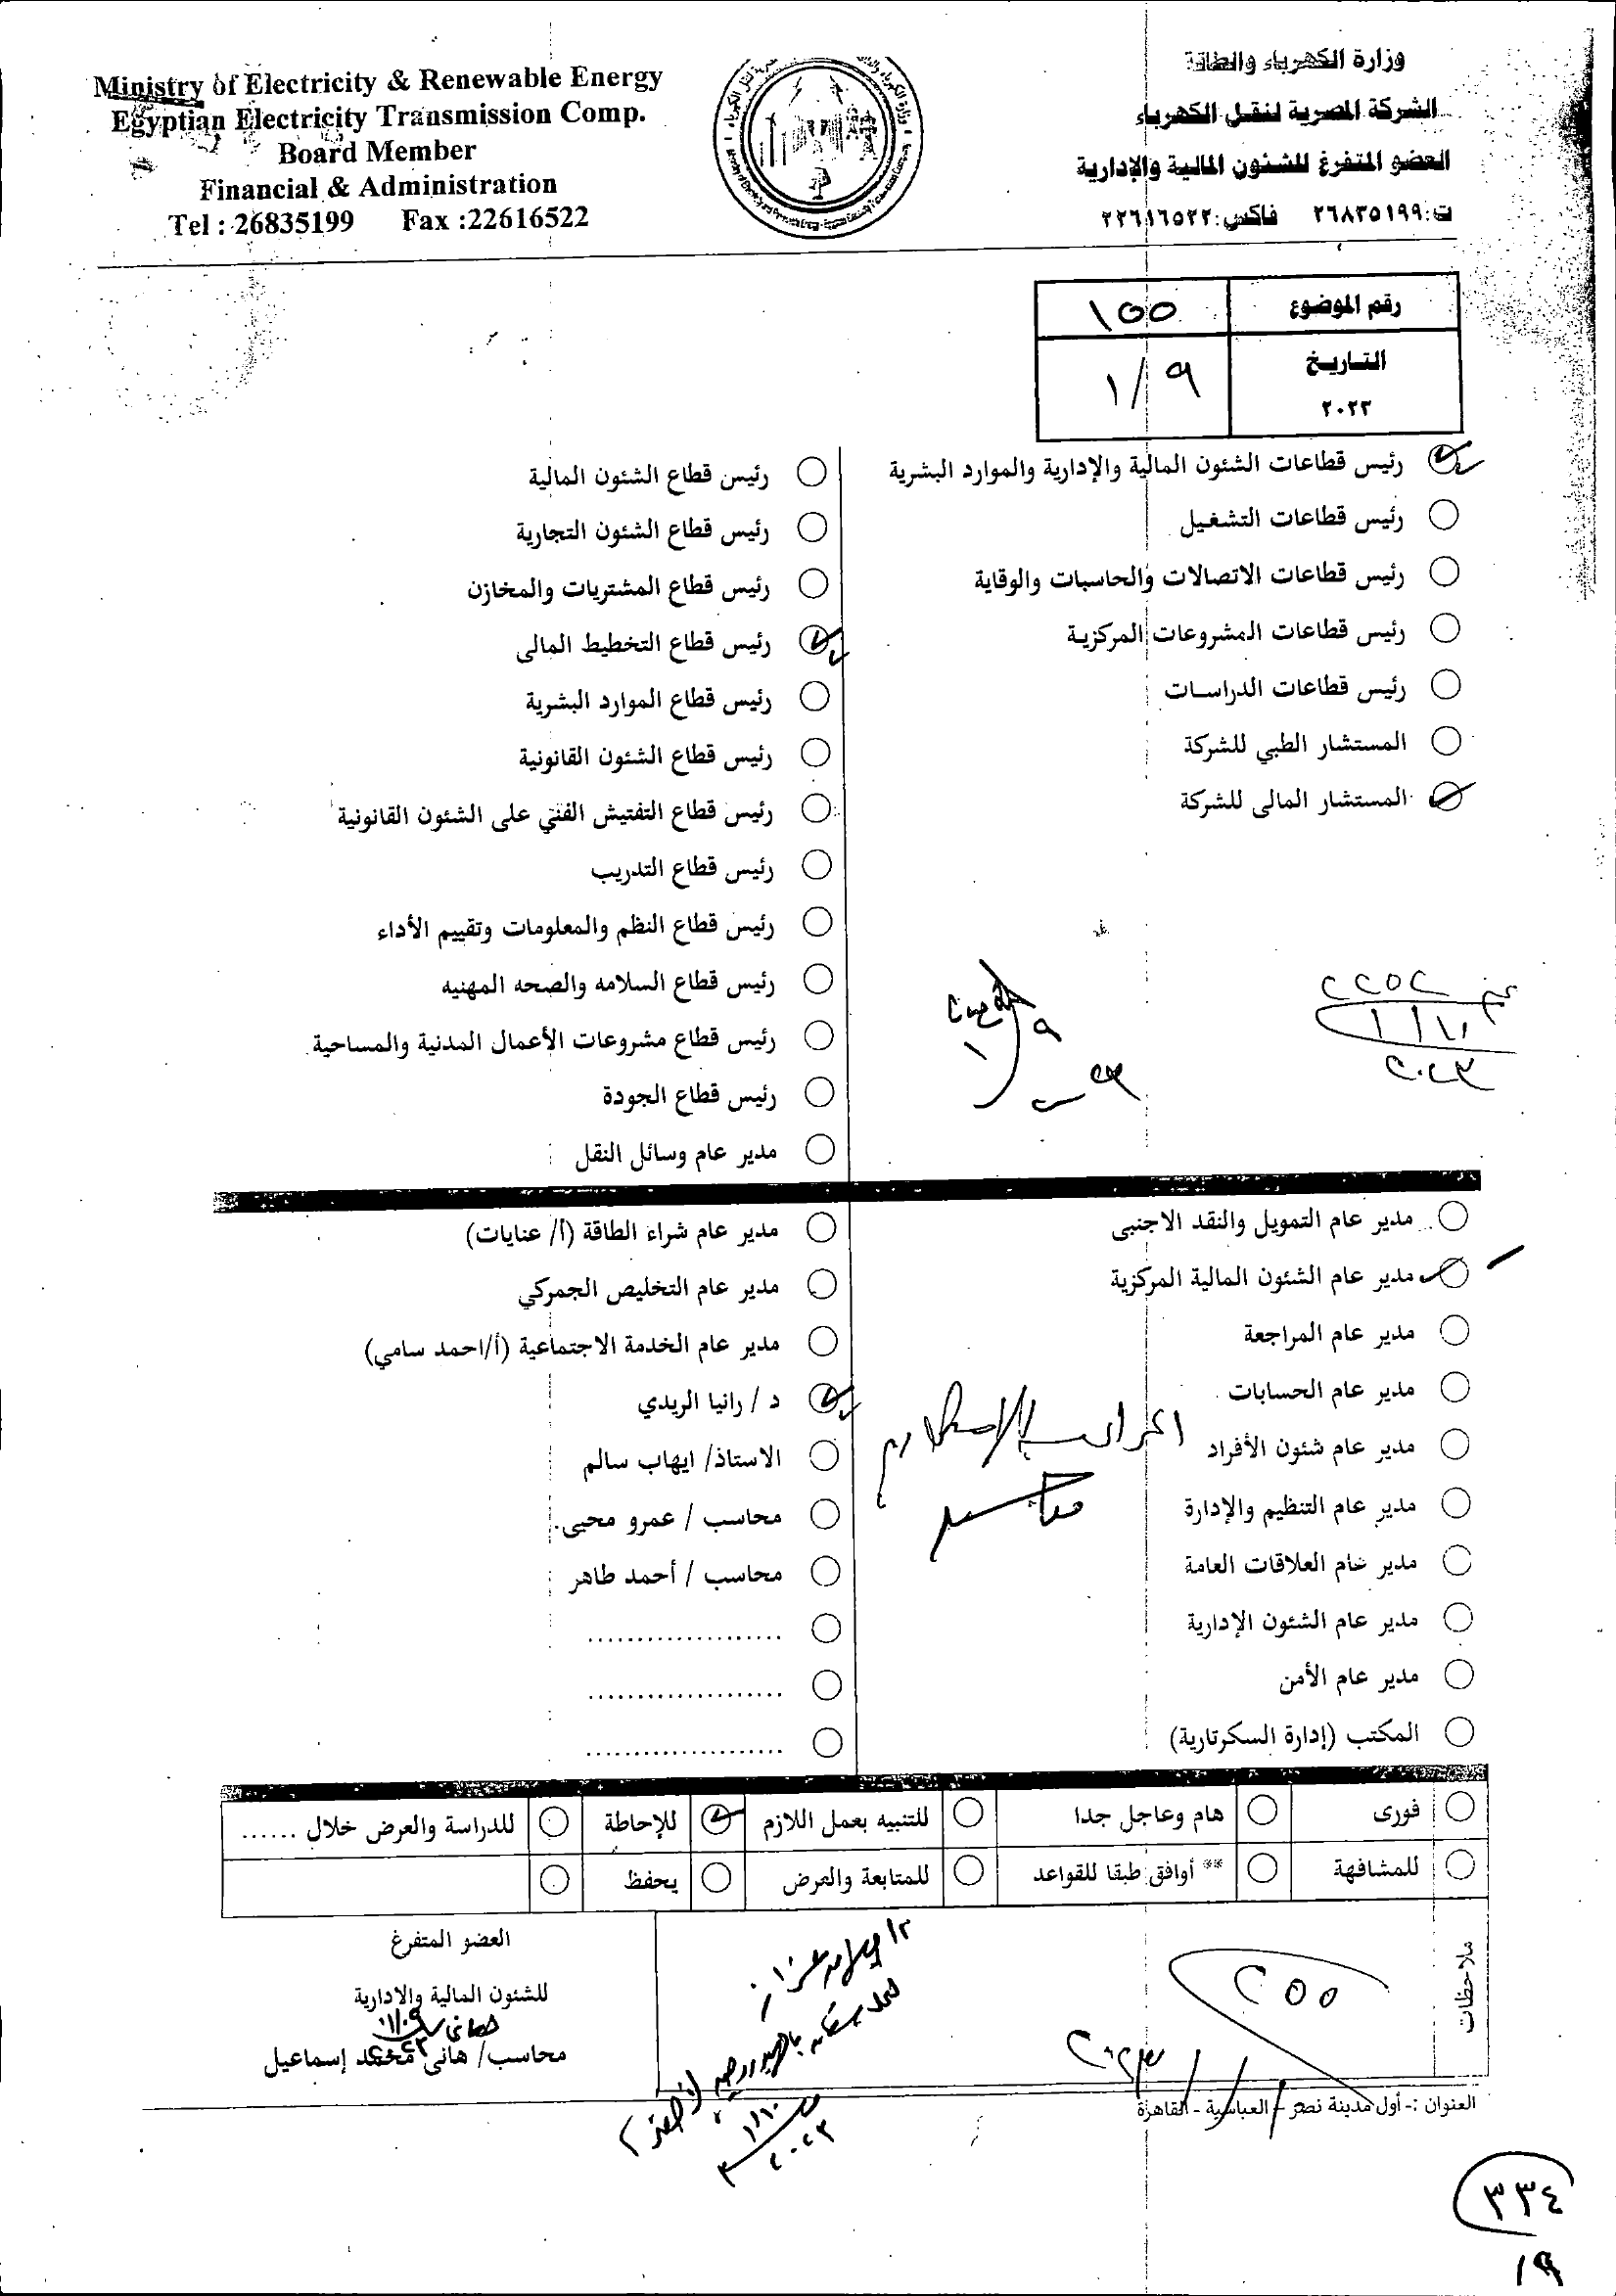 Ministry of Electricity & Renewable Energy
Egyptian Electricity Transmission Comp.
Board Member
Financial & Administration
Tel : 26835199 Fax :22616522
وزارة الكهرباء والطاقة
الشركة المصرية لنقل الكهرباء
العضو المتفرغ للشئون المالية والإدارية
ت:٢٦٨٣٥١٩٩ فاكس:٢٢٦١٦٥٢٢
رقم الموضوع ١٥٥
التاريخ ١/٩
٢٠٢٣
رئيس قطاعات الشئون المالية والإدارية والموارد البشرية
رئيس قطاعات التشغيل
رئيس قطاعات الاتصالات والحاسبات والوقاية
رئيس قطاعات المشروعات المركزية
رئيس قطاعات الدراسات
المستشار الطبي للشركة
المستشار المالى للشركة
رئيس قطاع الشئون المالية
رئيس قطاع الشئون التجارية
رئيس قطاع المشتريات والمخازن
رئيس قطاع التخطيط المالى
رئيس قطاع الموارد البشرية
رئيس قطاع الشئون القانونية
رئيس قطاع التفتيش الفني على الشئون القانونية
رئيس قطاع التدريب
رئيس قطاع النظم والمعلومات وتقييم الأداء
رئيس قطاع السلامه والصحه المهنيه
رئيس قطاع مشروعات الأعمال المدنية والمساحية
رئيس قطاع الجودة
مدير عام وسائل النقل
٢٢٥٢
١/١١
٢٠٢٣
٩
١
مدير عام التمويل والنقد الاجنبى
مدير عام الشئون المالية المركزية
مدير عام المراجعة
مدير عام الحسابات
مدير عام شئون الأفراد
مدير عام التنظيم والإدارة
مدير عام العلاقات العامة
مدير عام الشئون الإدارية
مدير عام الأمن
المكتب (إدارة السكرتارية)
مدير عام شراء الطاقة (أ/ عنايات)
مدير عام التخليص الجمركي
مدير عام الخدمة الاجتماعية (أ/احمد سامي)
د / رانيا الريدي
الاستاذ/ ايهاب سالم
محاسب / عمرو محيى
محاسب / أحمد طاهر
....................
....................
....................
فورى هام وعاجل جدا للتنبيه بعمل اللازم للإحاطة للدراسة والعرض خلال ......
للمشافهة ** أوافق طبقا للقواعد للمتابعة والعرض يحفظ
ملاحظات
٢٥٥
٢٠٢٣/١/
١/١٠
٢٠٢٣
العضو المتفرغ
للشئون المالية والإدارية
محاسب/ هانى محمد إسماعيل
العنوان :- أول مدينة نصر - العباسية - القاهرة
٣٣٤
١٩